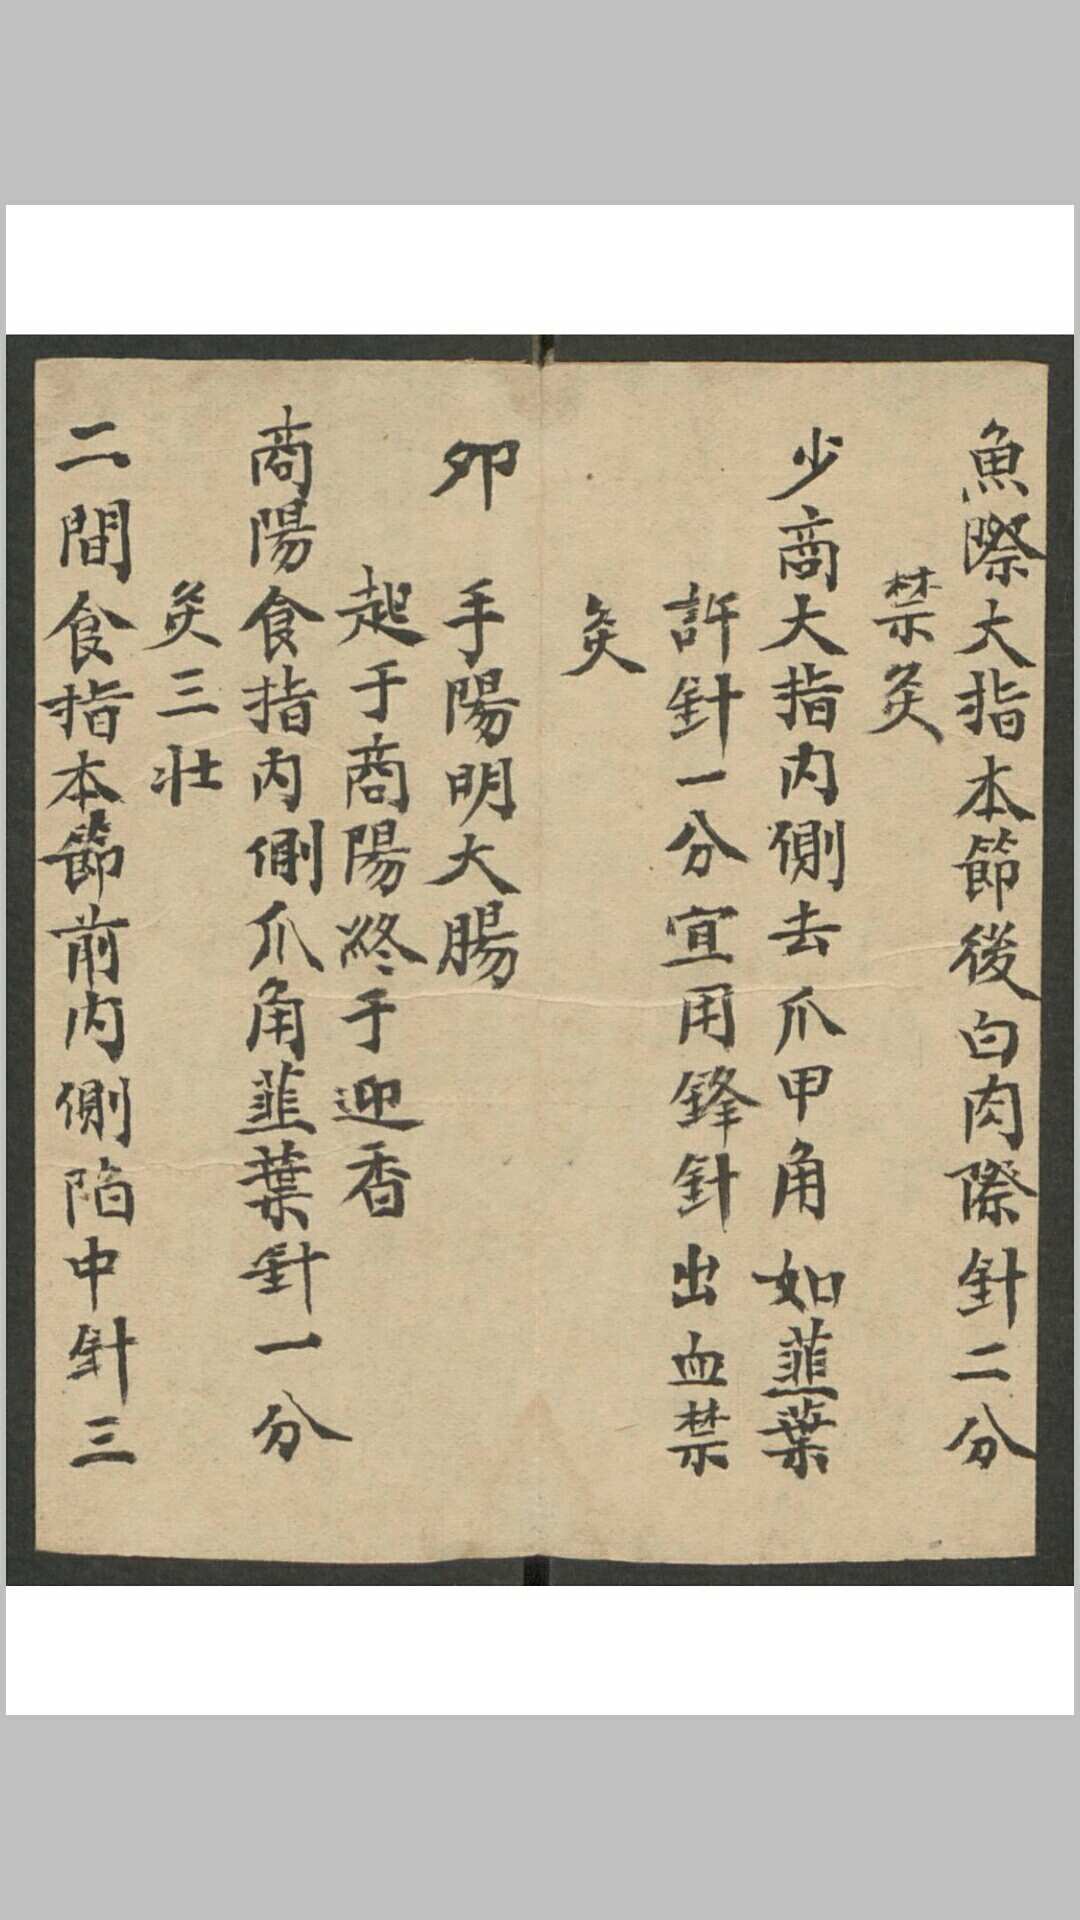 魚際大指本節後白肉際針二分
禁灸
少商大指内側去爪甲角如韮葉
許針一分宜用鋒針針出血禁
灸
卯 手陽明大腸
起于商陽終于迎香
商陽食指内側爪角韮葉針一分
灸三壮
二間食指本節前内側陷中針三